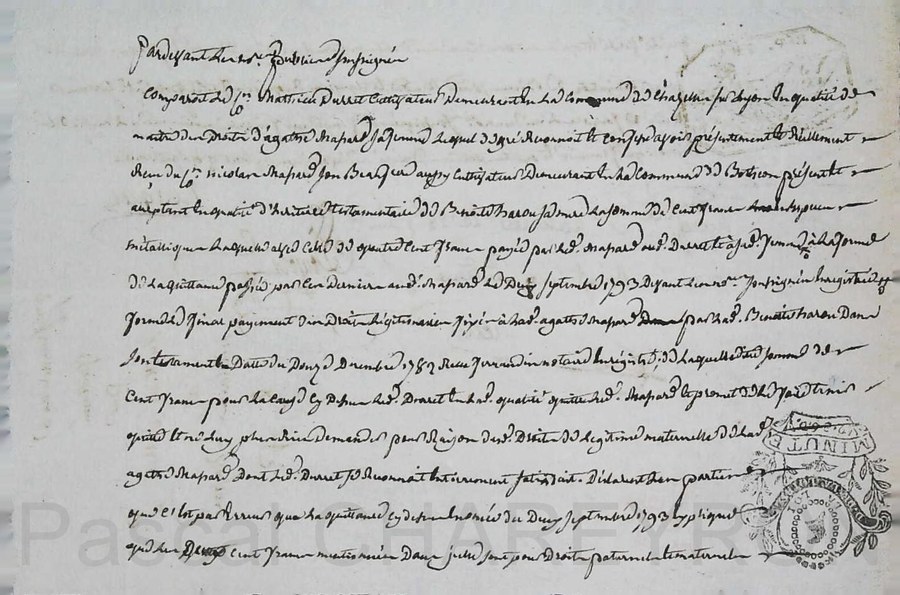 Pardevant le no.re public soussigné
Comparoit le c.en Mathieu Durret Cultivateur demeurant en la Commune de Chazelle sur Lyon en qualité de
maitre des Droits d'agathe Mapard sa femme Lequel de gré Reconnoit et Confesse avoir présentement et Réellement
Reçu du c.en nicolas Mapard son Beaufrere aussy Cultivateur Demeurant en la Commune de présent et
acceptant en qualité d'heritier testamentaire de Benoite sa mere La somme de Cent francs En especes
métallique Laquelle avec Celle de quatre Cent francs payée par led. Mapard aud. Durret et à sad. femme à la forme
de la quittance passée par Ces Derniers aud. Mapard Le Deux Septembre 1793 Devant le no.re soussigné Enregistrée
forme le final payement des Droits Légitimaires fixés à lad. agathe Mapard par lad. Benoite Dans
son testament En Datte du Douze Decembre 1782 Reçu notaire Enregistré, de Laquelle de somme de
Cent francs pour la Cause Cy Dessus led. Durret En lad. qualité quitte led. Mapard et promet de le faire tenir
quitte et ne luy plus Rien demander pour Raison des d. Droits de Legitime maternelle de lad.
agathe Mapard Dont led. Durret se Reconnoit Entierement satisfait. Déclarant les parties
que C'est par Erreur que la quittance Cy dessus Enoncée du Deux Septembre 1793 Explique
que les Cent francs mentionnés Dans jcelle sont pour Droits paternels et maternels
MINUTE
Pascal CHAREYRON